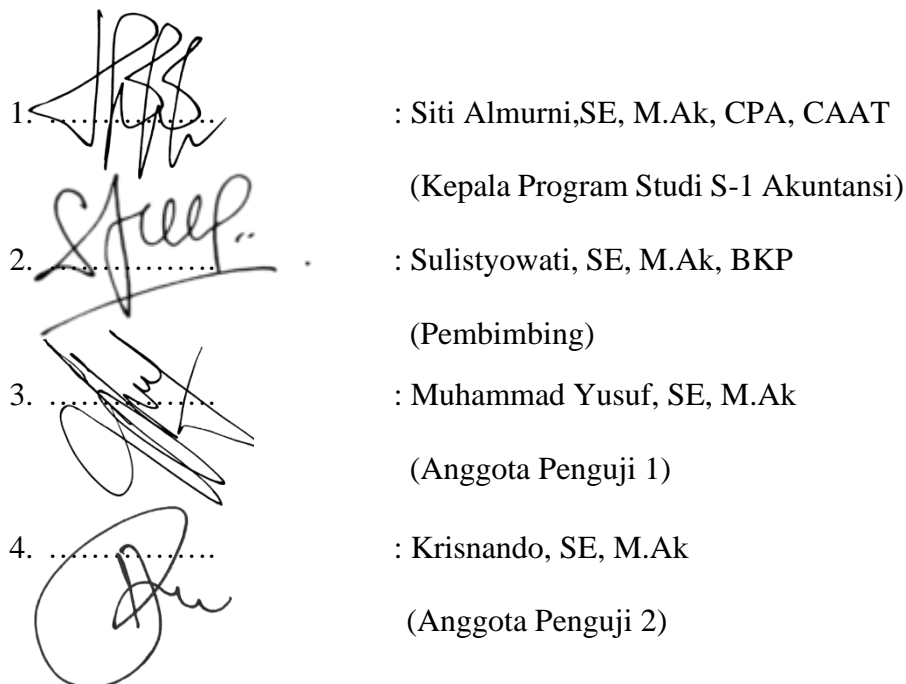 1. ……………. : Siti Almurni,SE, M.Ak, CPA, CAAT
(Kepala Program Studi S-1 Akuntansi)
2. ……………. : Sulistyowati, SE, M.Ak, BKP
(Pembimbing)
3. ……………. : Muhammad Yusuf, SE, M.Ak
(Anggota Penguji 1)
4. ……………. : Krisnando, SE, M.Ak
(Anggota Penguji 2)